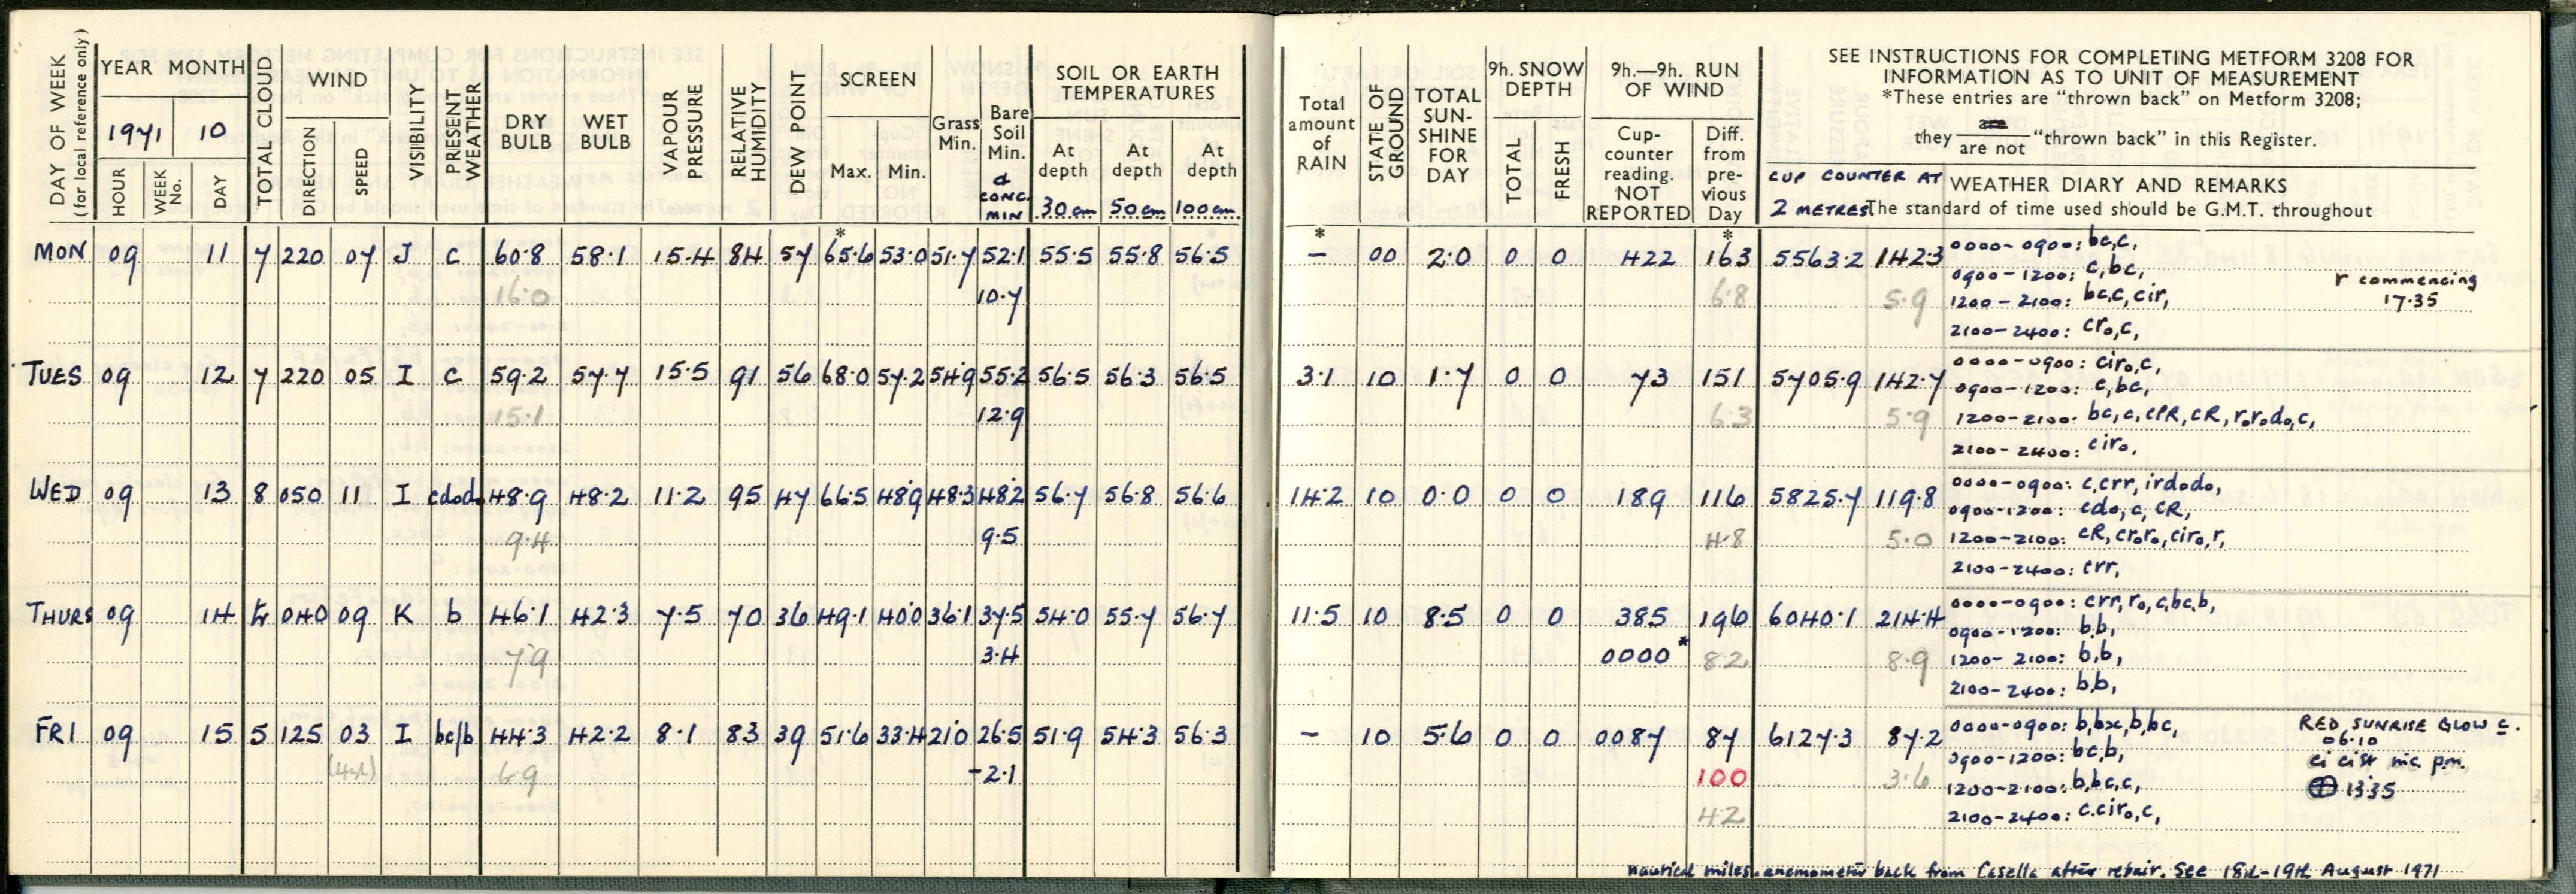 DAY OF WEEK (for local reference only)
YEAR MONTH
1971 10
HOUR WEEK No. DAY
TOTAL CLOUD
WIND
DIRECTION SPEED
VISIBILITY
PRESENT WEATHER
DRY BULB
WET BULB
VAPOUR PRESSURE
RELATIVE HUMIDITY
DEW POINT
SCREEN
Max. Min.
Grass Min.
Bare Soil Min. & CONC. MIN
SOIL OR EARTH TEMPERATURES
At depth 30 cm At depth 50 cm At depth 100 cm
Total amount of RAIN
STATE OF GROUND
TOTAL SUN-SHINE FOR DAY
9h. SNOW DEPTH
TOTAL FRESH
9h.—9h. RUN OF WIND
Cup-counter reading. NOT REPORTED
Diff. from pre-vious Day
SEE INSTRUCTIONS FOR COMPLETING METFORM 3208 FOR
INFORMATION AS TO UNIT OF MEASUREMENT
*These entries are "thrown back" on Metform 3208;
they are / are not "thrown back" in this Register.
CUP COUNTER AT 2 METRES
WEATHER DIARY AND REMARKS
The standard of time used should be G.M.T. throughout
* * *
MON 09 11 7 220 07 J c 60.8 58.1 15.4 84 57 65.6 53.0 51.7 52.1 55.5 55.8 56.5 – 00 2.0 0 0 422 163 5563.2 142.3 0000-0900: bc,c,
0900-1200: c,bc,
16.0 10.7 6.8 5.9 1200-2100: bc,c,cir, r commencing 17.35
2100-2400: cro,c,
TUES 09 12 7 220 05 I c 59.2 57.7 15.5 91 56 68.0 57.2 54.9 55.2 56.5 56.3 56.5 3.1 10 1.7 0 0 73 151 5705.9 142.7 0000-0900: ciro,c,
0900-1200: c,bc,
15.1 12.9 6.3 5.9 1200-2100: bc,c,cPR,cR,r,rodo,c,
2100-2400: ciro,
WED 09 13 8 050 11 I cdodo 48.9 48.2 11.2 95 47 66.5 48.9 48.3 48.2 56.7 56.8 56.6 14.2 10 0.0 0 0 189 116 5825.7 119.8 0000-0900: c,crr,irdodo,
0900-1200: cdo,c,cR,
9.4 9.5 4.8 5.0 1200-2100: cR,croro,ciro,r,
2100-2400: crr,
THURS 09 14 040 09 K b 46.1 42.3 7.5 70 36 49.1 40.0 36.1 37.5 54.0 55.7 56.7 11.5 10 8.5 0 0 385 196 6040.1 214.4 0000-0900: crr,ro,c,bc,b,
0900-1200: b,b,
7.9 3.4 0000* 8.2 8.9 1200-2100: b,b,
2100-2400: b,b,
FRI 09 15 5 125 03 I bc/b 44.3 42.2 8.1 83 39 51.6 33.4 21.0 26.5 51.9 54.3 56.3 – 10 5.6 0 0 0087 87 6127.3 87.2 0000-0900: b,bx,b,bc, RED SUNRISE GLOW c. 06.10
0900-1200: bc,b, ci cist nic p.m.
6.9 -2.1 100 3.6 1200-2100: b,bc,c, ⊕ 1335
42 2100-2400: c.ciro,c,
nautical miles anemometer back from Casella after repair. See 18th-19th August 1971